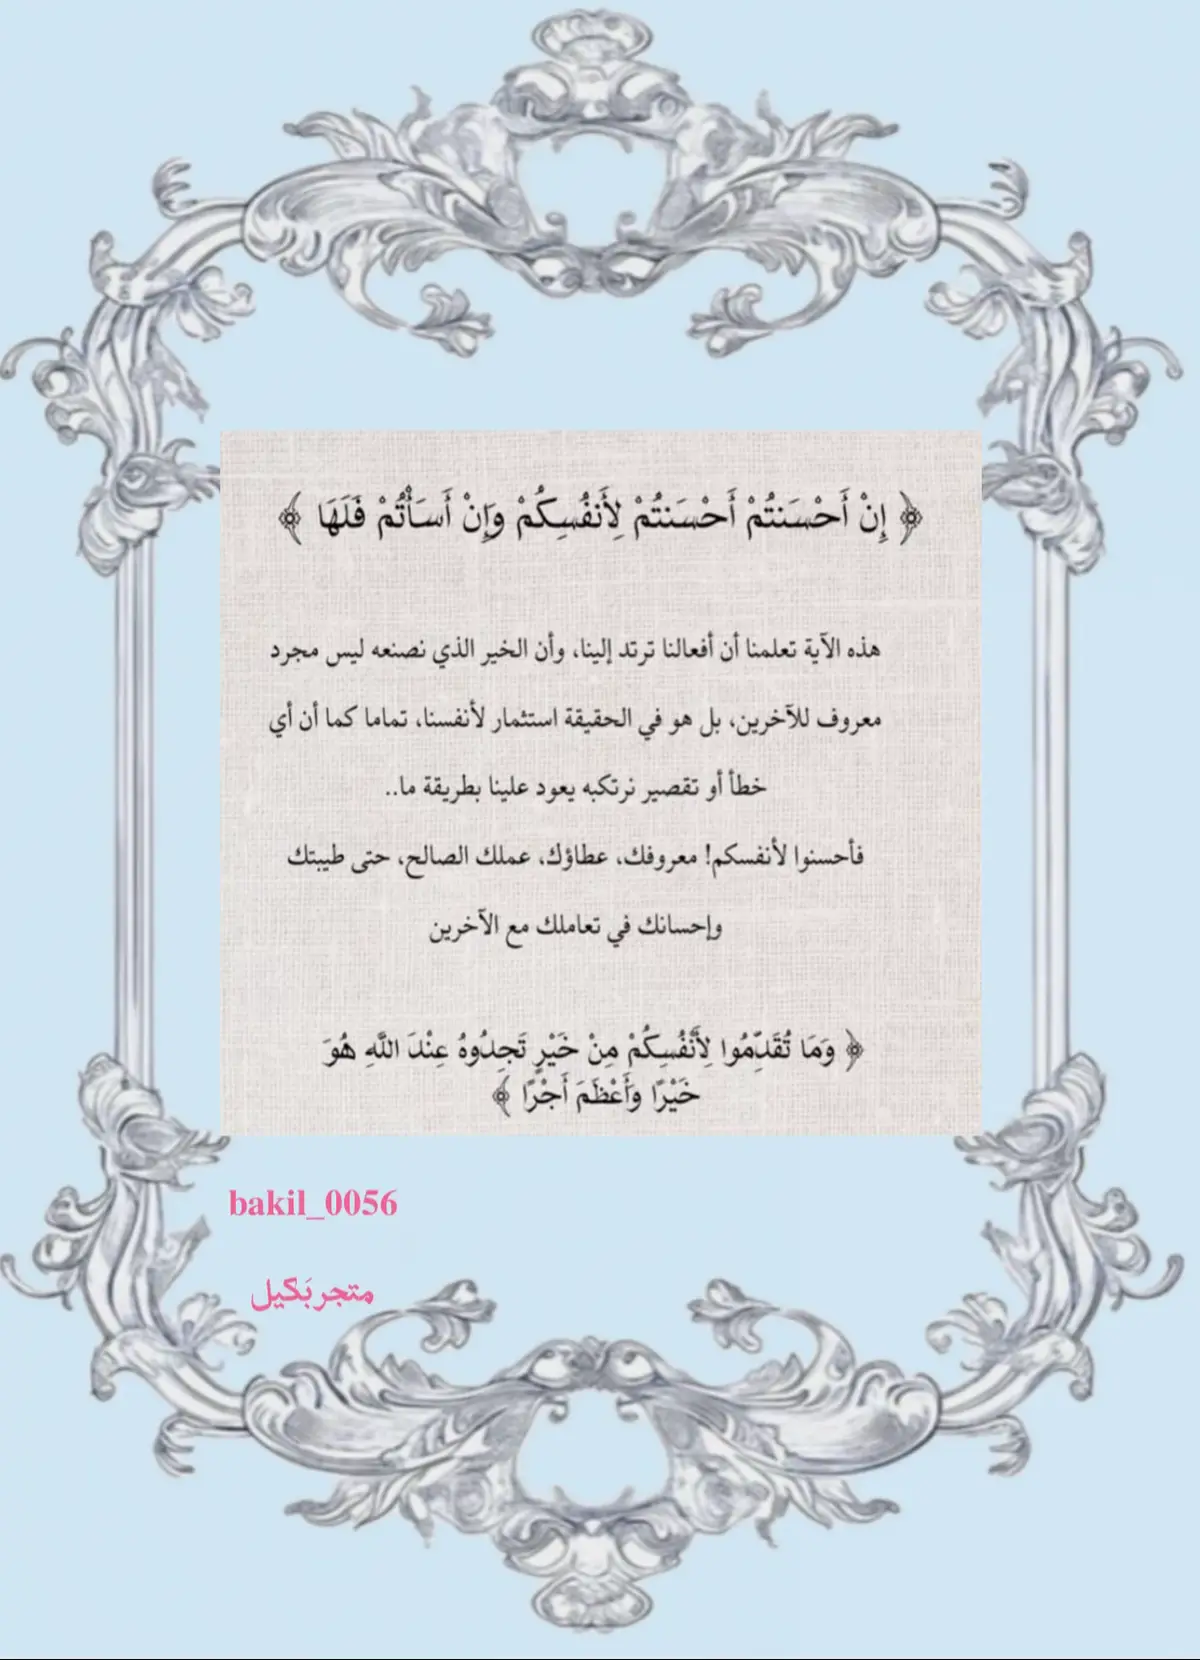 ﴿ إِنْ أَحْسَنتُمْ أَحْسَنتُمْ لِأَنفُسِكُمْ وَإِنْ أَسَأْتُمْ فَلَهَا ﴾
هذه الآية تعلمنا أن أفعالنا ترتد إلينا، وأن الخير الذي نصنعه ليس مجرد
معروف للآخرين، بل هو في الحقيقة استثمار لأنفسنا، تماما كما أن أي
خطأ أو تقصير نرتكبه يعود علينا بطريقة ما..
فأحسنوا لأنفسكم! معروفك، عطاؤك، عملك الصالح، حتى طيبتك
وإحسانك في تعاملك مع الآخرين
﴿ وَمَا تُقَدِّمُوا لِأَنْفُسِكُمْ مِنْ خَيْرٍ تَجِدُوهُ عِنْدَ اللَّهِ هُوَ
خَيْرًا وَأَعْظَمَ أَجْرًا ﴾
bakil_0056
متجر بَكيل